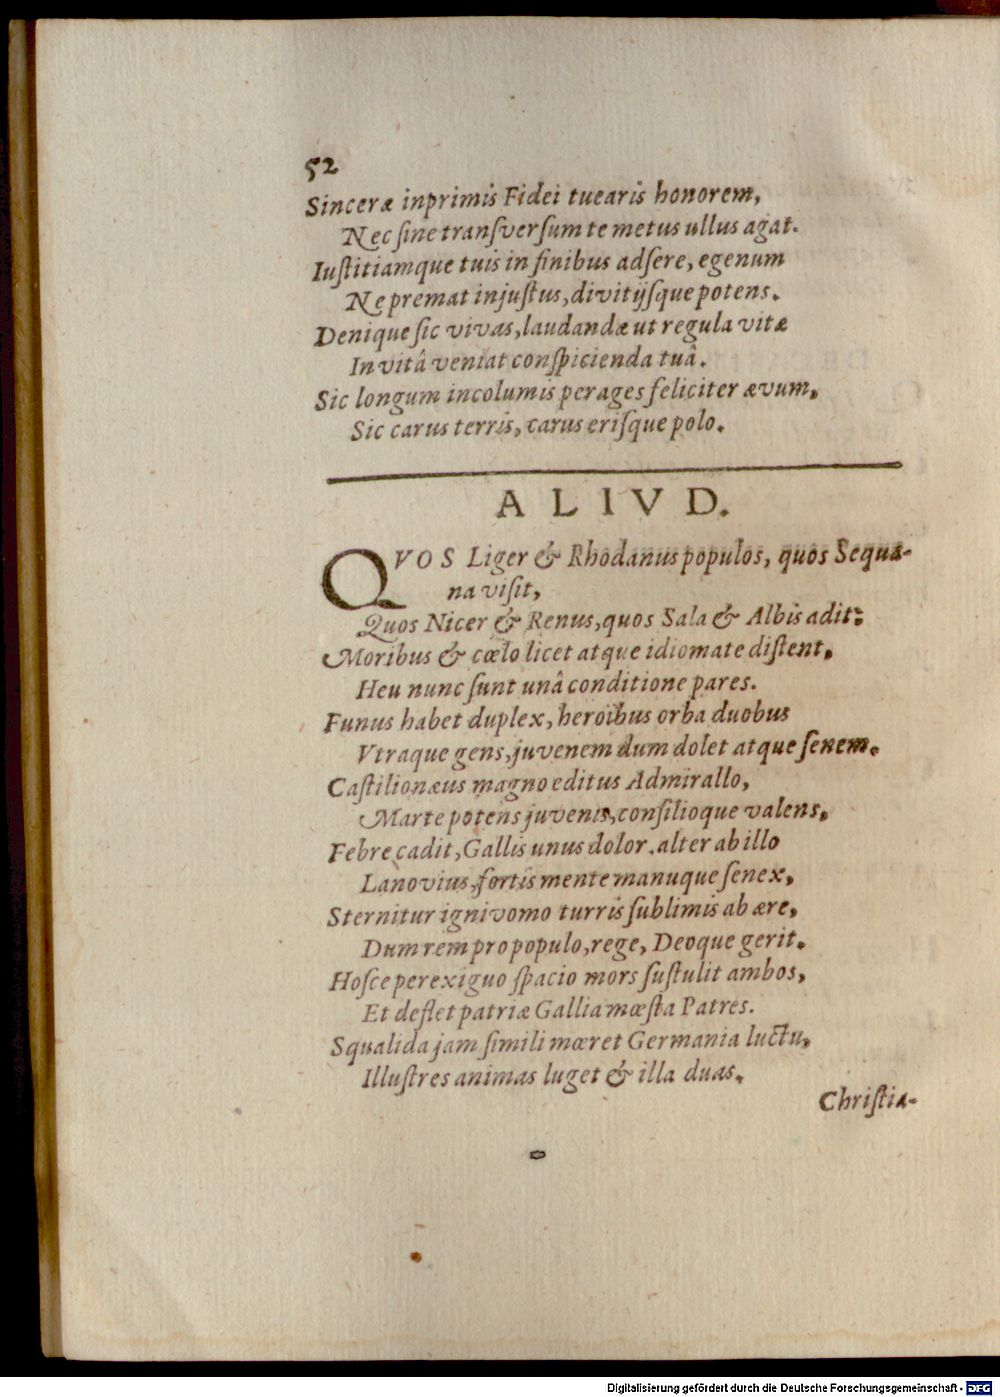 52
Sinceræ inprimis Fidei tuearis honorem,
Nec ſine tranſverſum te metus ullus agat.
Iuſtitiamque tuis in finibus adſere, egenum
Ne premat injuſtus, divitijſque potens.
Denique ſic vivas, laudandæ ut regula vitæ
In vitâ veniat conſpicienda tuâ.
Sic longum incolumis perages feliciter ævum,
Sic carus terris, carus eriſque polo.
ALIVD.
QVOS Liger & Rhodanus populos, quos Sequa-
na viſit,
Quos Nicer & Renus, quos Sala & Albis adit:
Moribus & cœlo licet atque idiomate diſtent,
Heu nunc ſunt unâ conditione pares.
Funus habet duplex, heroibus orba duobus
Vtraque gens, juvenem dum dolet atque ſenem.
Caſtilionæus magno editus Admirallo,
Marte potens juvenis, conſilioque valens,
Febre cadit, Gallis unus dolor. alter ab illo
Lanovius, fortis mente manuque ſenex,
Sternitur ignivomo turris ſublimis ab ære,
Dum rem pro populo, rege, Deoque gerit.
Hoſce perexiguo ſpacio mors ſuſtulit ambos,
Et deflet patriæ Gallia mœſta Patres.
Squalida jam ſimili mœret Germania luctu,
Illuſtres animas luget & illa duas.
Chriſtia-
Digitalisierung gefördert durch die Deutsche Forschungsgemeinschaft - DFG